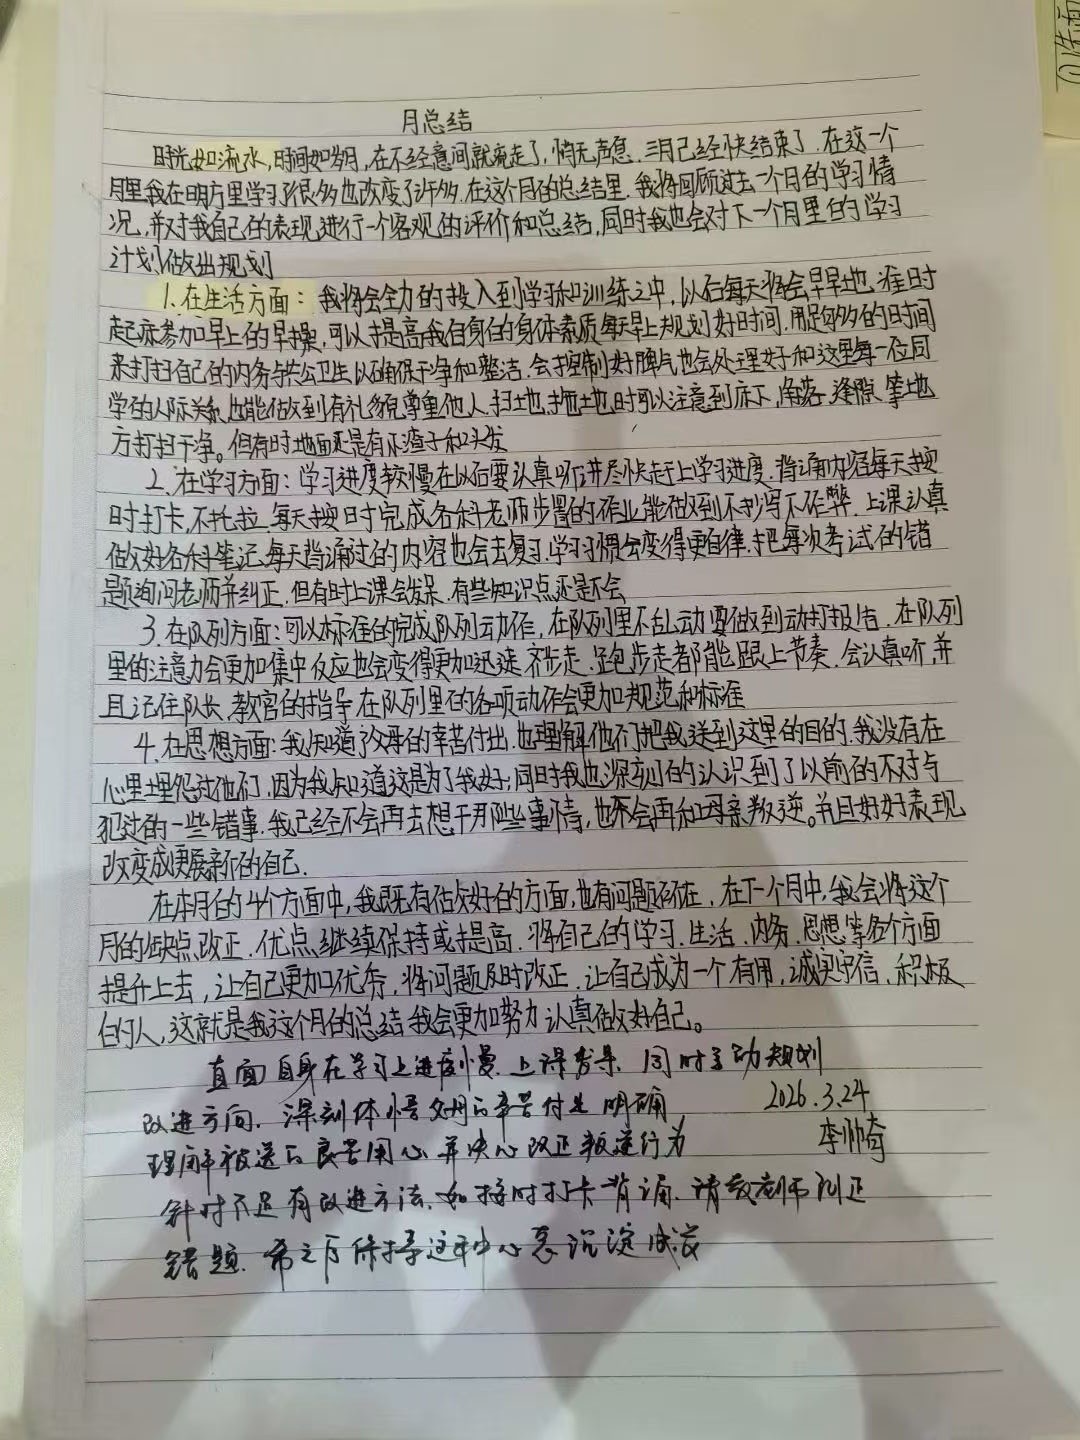 月总结
时光如流水,时间如岁月,在不经意间就流走了,悄无声息.三月已经快结束了.在这一个
月里我在明方里学习了很多也改变了许多.在这个月的总结里.我将回顾过去一个月的学习情
况,并对我自己的表现进行一个客观的评价和总结,同时我也会对下一个月里的学习
计划做出规划
1.在生活方面:我将会全力的投入到学习和训练之中,以后每天将会早早地.准时
起床参加早上的早操,可以提高我自身的身体素质每天早上规划好时间.用足够多的时间
来打扫自己的内务与公共卫生以确保干净和整洁.会控制好脾气也会处理好和这里每一位同
学的人际关系.也能做到有礼貌尊重他人.扫地.拖地.时可以注意到床下,角落.缝隙.等地
方打扫干净。但有时地面还是有小渣子和头发
2.在学习方面:学习进度较慢在以后要认真听讲尽快赶上学习进度.背诵内容每天按
时打卡,不托拉.每天按时完成各科老师步置的作业能做到不抄写不作弊.上课认真
做好各科笔记.每天背诵过的内容也会去复习.学习习惯会变得更自律.把每次考试的错
题询问老师并纠正.但有时上课会发呆.有些知识点还是不会
3.在队列方面:可以标准的完成队列动作,在队列里不乱动要做到动打报告.在队列
里的注意力会更加集中反应也会变得更加迅速.齐步走.跑步走都能跟上节奏.会认真听,并
且记住队长.教官的指导在队列里的各项动作会更加规范和标准
4.在思想方面:我知道了父母的辛苦付出.也理解他们把我送到这里的目的.我没有在
心里埋怨过他们.因为我知道这是为了我好;同时我也深刻的认识到了以前的不对与
犯过的一些错事.我已经不会再去想干那些事情,也不会再和母亲叛逆。并且好好表现
改变成更展新的自己.
在本月的4个方面中,我既有做好的方面,也有问题存在.在下一个月中,我会将这个
月的缺点.改正.优点.继续保持或提高.将自己的学习.生活.内务.思想等各个方面
提升上去,让自己更加优秀,将问题及时改正.让自己成为一个有用,诚实守信,积极
的人,这就是我这个月的总结我会更加努力认真做好自己。
直面自身在学习上进度慢.上课发呆.同时主动规划
改进方向.深刻体悟父母的辛苦付出 明确
2026.3.24
理解被送的良苦用心并决心改正叛逆行为
李帅奇
针对不足有改进方法.如按时打卡背诵.请教老师纠正
错题.希之后保持这种心态沉淀成长